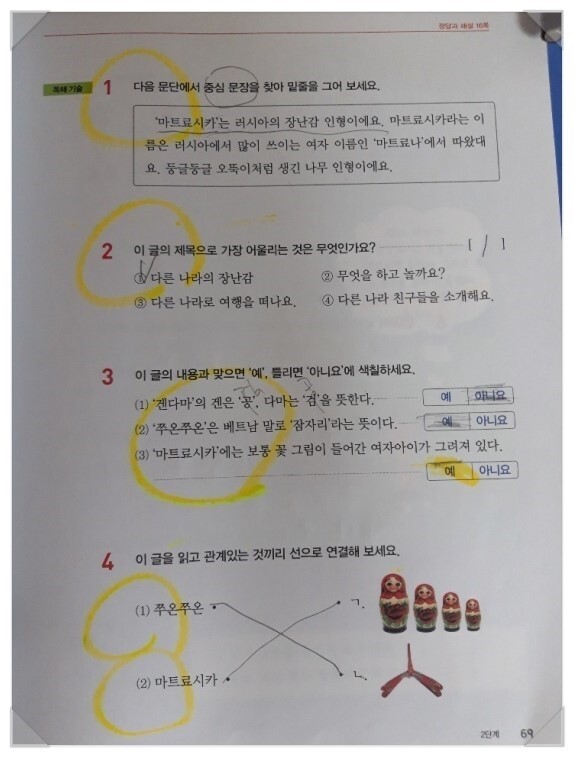 정답과 해설 16쪽
독해 기술
1 다음 문단에서 중심 문장을 찾아 밑줄을 그어 보세요.
'마트료시카'는 러시아의 장난감 인형이에요. 마트료시카라는 이
름은 러시아에서 많이 쓰이는 여자 이름인 '마트료나'에서 따왔대
요. 둥글둥글 오뚝이처럼 생긴 나무 인형이에요.
2 이 글의 제목으로 가장 어울리는 것은 무엇인가요? [ 1 ]
① 다른 나라의 장난감 ② 무엇을 하고 놀까요?
③ 다른 나라로 여행을 떠나요. ④ 다른 나라 친구들을 소개해요.
3 이 글의 내용과 맞으면 '예', 틀리면 '아니요'에 색칠하세요.
(1) '겐다마'의 겐은 '공', 다마는 '검'을 뜻한다. 예 아니요
(2) '쭈온쭈온'은 베트남 말로 '잠자리'라는 뜻이다. 예 아니요
(3) '마트료시카'에는 보통 꽃 그림이 들어간 여자아이가 그려져 있다.
예 아니요
4 이 글을 읽고 관계있는 것끼리 선으로 연결해 보세요.
(1) 쭈온쭈온 ㄱ.
(2) 마트료시카 ㄴ.
2단계 69